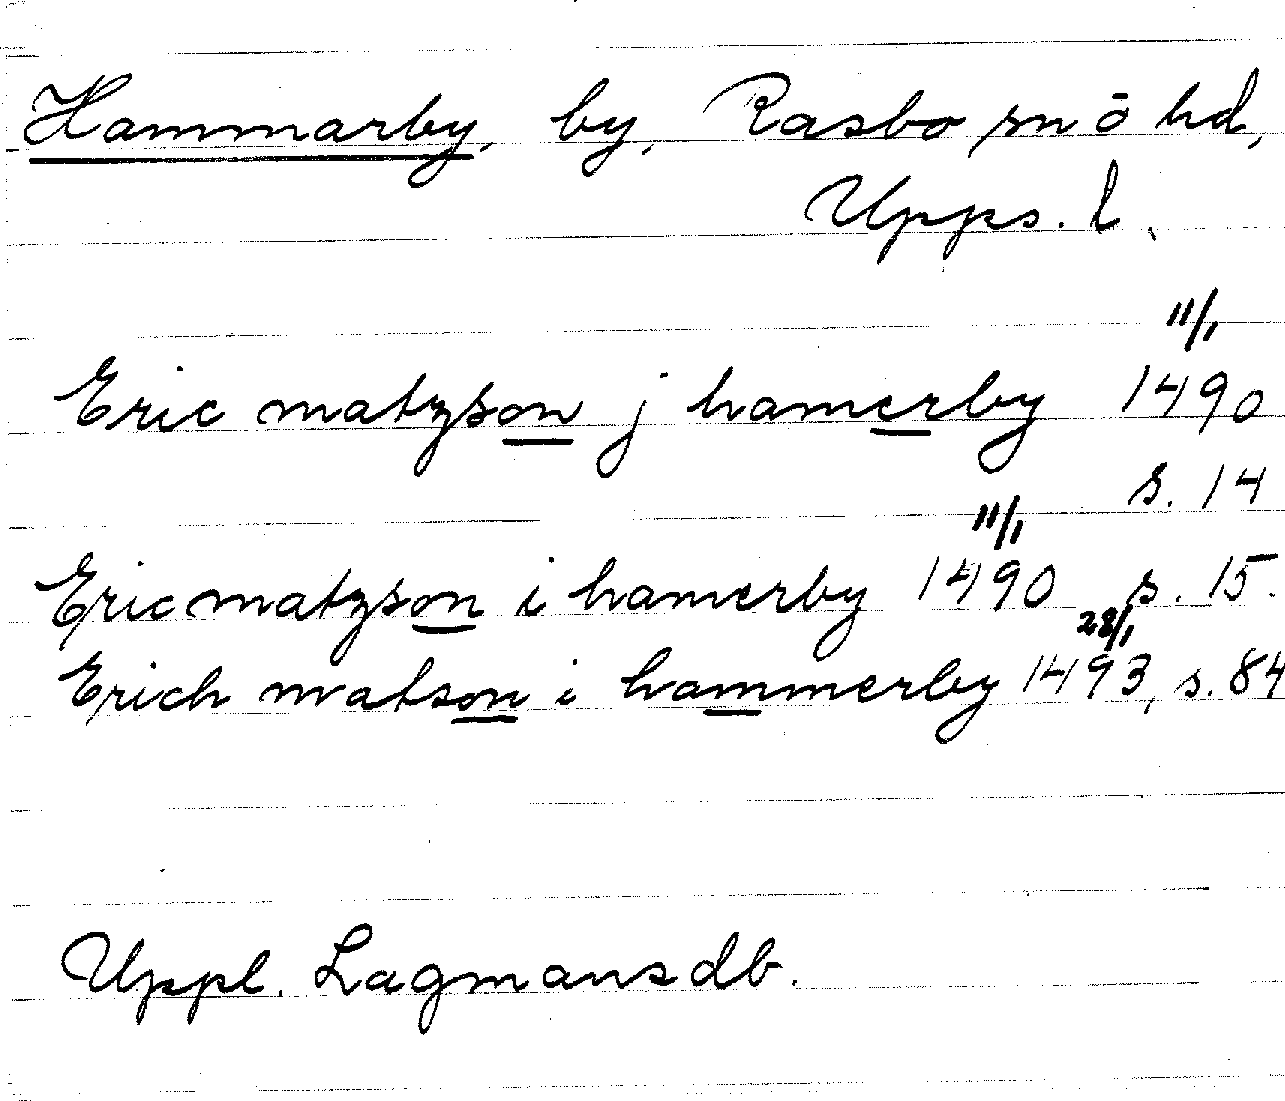 Hammarby, by, Rasbo sn o hd,
Upps. l.
11/1
Eric matzson j hamerby 1490
s. 14
11/1
Eric matzson i hamerby 1490 s. 15.
28/1
Erich matson i hammerby 1493, s. 84
Uppl. Lagmansdb.